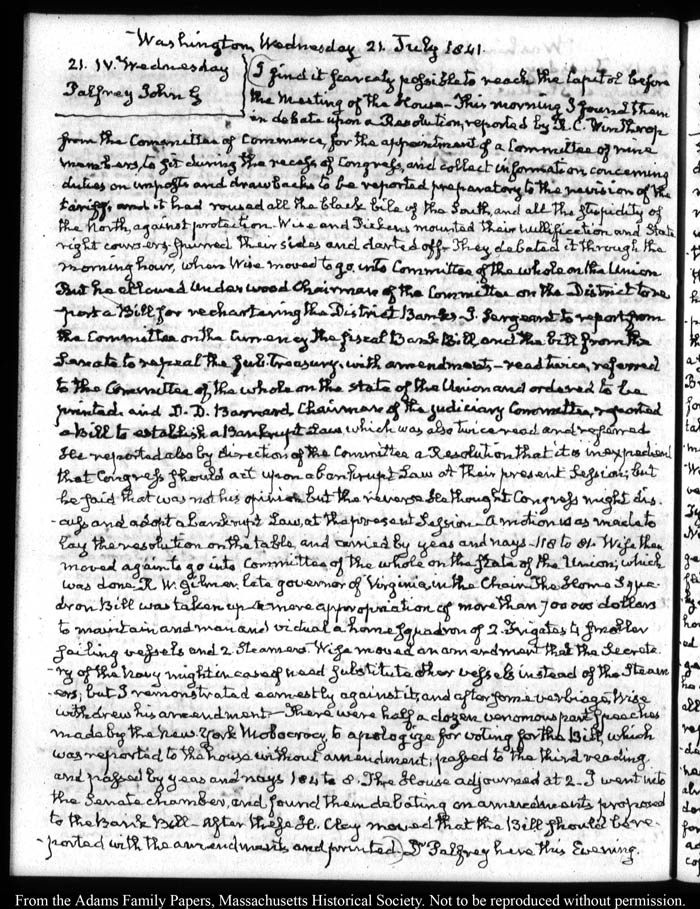 Washington Wednesday 21. July 1841.
21. IV. Wednesday
Palfrey John G
I find it scarcely possible to reach the Capitol before
the meeting of the House. This morning I found them
in debate upon a Resolution, reported by R. C. Winthrop
from the Committee of Commerce, for the appointment of a Committee of nine
members, to sit during the recess of Congress, and collect information concerning
duties on imposts and drawbacks to be reported preparatory to the revision of the
tariff, and it had roused all the black bile of the South, and all the stupidity of
the North, against protection. Wise and Pickens mounted their nullification and State
right coursers spurred their sides and darted off. They debated it through the
morning hour, when Wise moved to go into Committee of the whole on the Union
But he allowed Underwood Chairman of the Committee on the District to re
port a Bill for rechartering the District Banks. J. Sergeant to report from
the Committee on the Currency the fiscal Bank Bill and the bill from the
Senate to repeal the Sub-Treasury, with amendments – read twice, referred
to the Committee of the whole on the state of the Union and ordered to be
printed. and D. D. Barnard, Chairman of the judiciary Committee, reported
a Bill to establish a Bankrupt Law which was also twice read and referred
He reported also by direction of the Committee a Resolution that it is inexpedient
that Congress should act upon a bankrupt Law at their present Session; but
he said that was not his opinion but the reverse. He thought Congress might dis
-cuss and adopt a bankrupt Law, at the present Session – A motion was made to
lay the resolution on the table, and carried by yeas and nays – 118 to 81. Wise then
moved again to go into Committee of the whole on the State of the Union; which
was done. R. W. Gilmer, late governor of Virginia, in the Chair. The Home Squa
dron Bill was taken up – a mere appropriation of more than 700 000 dollars
to maintain and man and victual a home squadron of 2. Frigates 4 smaller
sailing vessels and 2 Steamers. Wise moved an amendment that the Secreta
-ry of the Navy might in case of need substitute other vessels instead of the Steam
-ers; but I remonstrated earnestly against it, and after some verbiage, Wise
withdrew his amendment – There were half a dozen venomous party speeches
made by the New-York Mobocracy to apologize for voting for the Bill, which
was reported to the house without amendment; passed to the third reading
and passed by yeas and nays 184 to 8. The House adjourned at 2. I went into
the Senate chamber, and found them debating on amendments proposed
to the Bank Bill – After these H. Clay moved that the Bill should be re-
-ported with the amendments and printed. Dr Palfrey here this Evening.
From the Adams Family Papers, Massachusetts Historical Society. Not to be reproduced without permission.